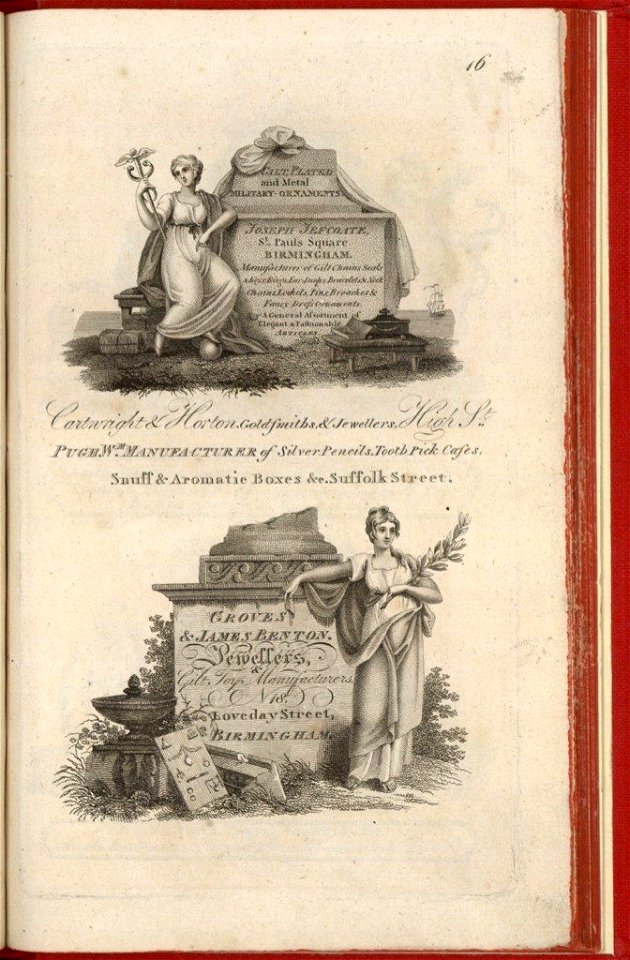 16
GILT, PLATED
and Metal
MILITARY ORNAMENTS.
JOSEPH JEFCOATE,
St. Pauls Square
BIRMINGHAM.
Manufacturer of Gilt Chains Seals
& Keys Rings, Ear-drops Bracelets & Neck
Chains, Lockets, Pins, Broaches &
Fancy Dress Ornaments.
A General Assortment of
Elegant & Fashionable
ARTICLES.
Cartwright & Horton, Goldsmiths, & Jewellers, High St.
PUGH, Wm. MANUFACTURER of Silver Pencils, Tooth Pick Cases,
Snuff & Aromatic Boxes &c. Suffolk Street.
GROVES
& JAMES BENTON,
Jewellers,
&
Gilt, Toy, Manufacturers,
No. 18,
Loveday Street,
BIRMINGHAM.